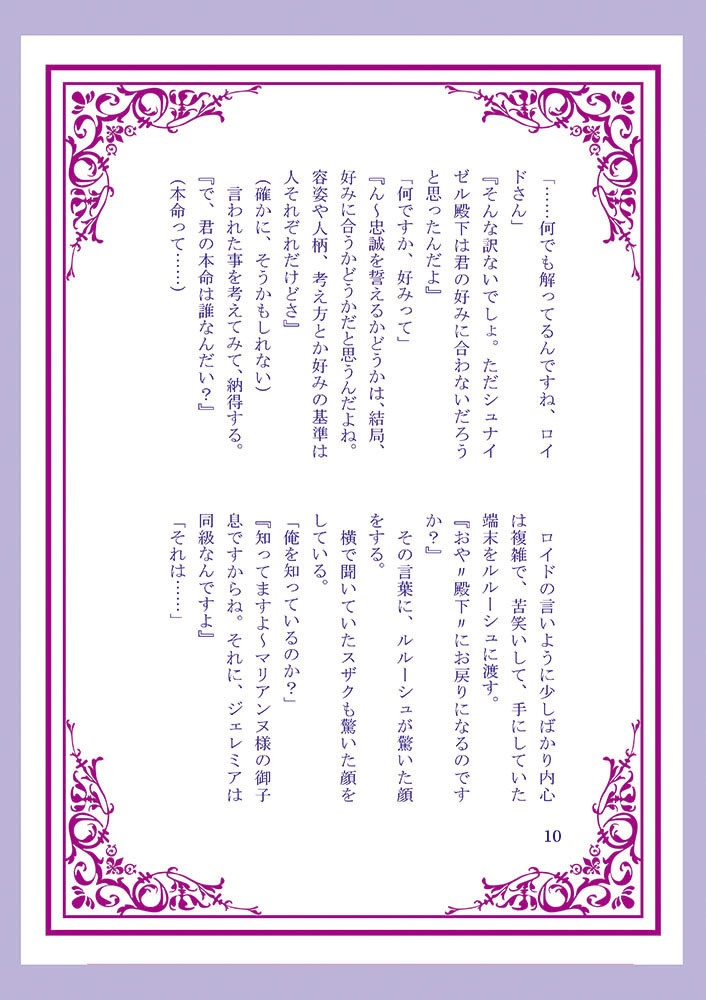 「……何でも解ってるんですね、ロイ
ドさん」
『そんな訳ないでしょ。ただシュナイ
ゼル殿下は君の好みに合わないだろう
と思ったんだよ』
「何ですか、好みって」
『ん～忠誠を誓えるかどうかは、結局、
好みに合うかどうかだと思うんだよね。
容姿や人柄、考え方とか好みの基準は
人それぞれだけどさ』
（確かに、そうかもしれない）
　言われた事を考えてみて、納得する。
『で、君の本命は誰なんだい？』
（本命って……）
　ロイドの言いように少しばかり内心
は複雑で、苦笑いして、手にしていた
端末をルルーシュに渡す。
『おや〃殿下〃にお戻りになるのです
か？』
　その言葉に、ルルーシュが驚いた顔
をする。
　横で聞いていたスザクも驚いた顔を
している。
「俺を知っているのか？」
『知ってますよ～マリアンヌ様の御子
息ですからね。それに、ジェレミアは
同級なんですよ』
「それは……」
10